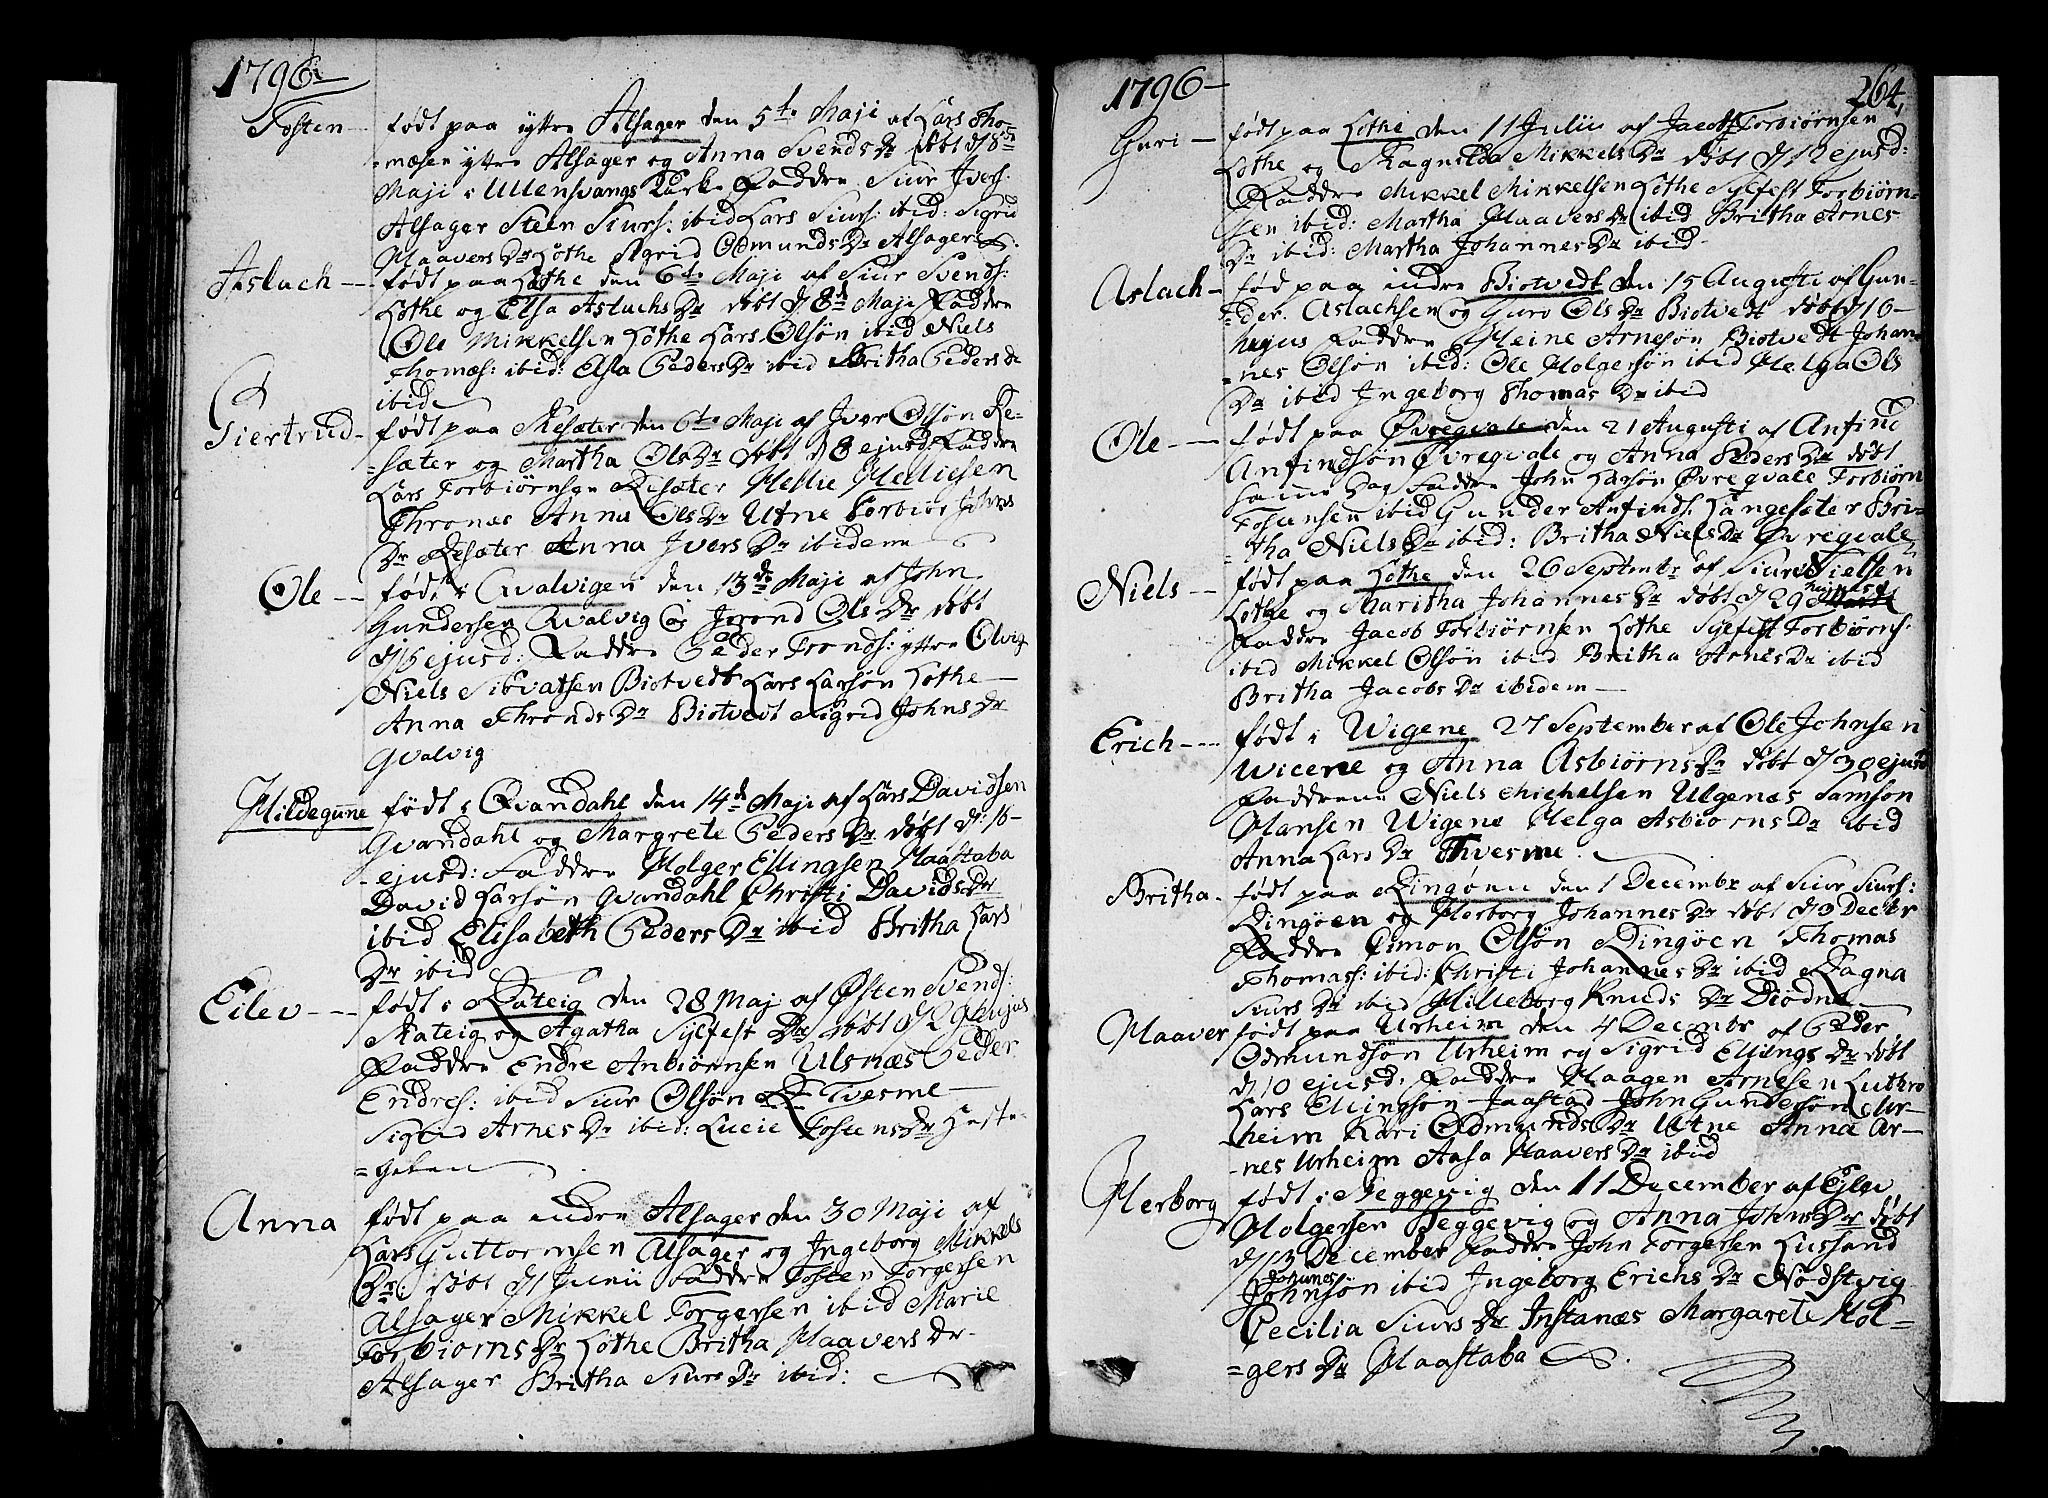 1796
Tosten -- født paa yttre Alsager den 5te Maji af Lars Tho-
=mæsen yttre Alsager og Anna Svends Dr døbt d 8de
Maji i Ullensvangs Kirke Faddre Siur Ivers:
Alsager Steen Siurs: ibid Lars Siurs: ibid: Sigrid
Haavers Dr Lothe Sigrid Odmunds Dr Alsager
Aslach -- født paa Lothe den 6te Maji af Siur Svends:
Lothe og Elsa Aslachs Dr døbt d 8d Maji Faddre
Ole Mikkelsen Lothe Lars Olsøn ibid Niels
Thomæs: ibid: Elsa Peders Dr ibid Britha Peders dr
ibid
Giertrud - født paa Resæter den 6te Maji af Iver Olsøn Re-
=sæter og Martha Ols Dr døbt d 8 ejusd: Faddre
Lars Torbiørnsen Resæter Hellie Helliesen
Thronæs Anna Ols Dr Utne Torbiør Johns
Dr Resæter Anna Ivers Dr ibidem
Ole -- født i Qvalvigen den 13de Maji af John
Gundersen Qvalvig og Jorond Ols Dr døbt
d 16 ejusd: Faddre Peder Tronds: yttre Olvig
Niels Sibvatsen Biotvedt Lars Larsøn Lothe
Anna Thronds Dr Biotvedt Sigrid Johns Dr
Qvalvig
Hildegunne født i Qvandahl den 14d Maji af Lars Davidsen
Qvandahl og Margrete Peders Dr døbt d: 16-
- ejusd: Faddre Holger Ellingsen Haastaba
David Larsøn Qvandahl Christi Davids Dr
ibid Elisabeth Peders Dr ibid Britha Lars
Dr ibid
Eilev -- født i Skateig den 28 Maj af Østen Svends:
Skateig og Agatha Sylfest Dr døbt d 29 hujus
Faddre Endre Anbiørnsen Ulsnæs Peder
Endres: ibid Siur Olsøn Tvesme
Sigrid Arnes Dr ibid: Lucie Tostens Dr Heste-
=
Anna født paa indre Alsager den 30 Maji af
Lars Guttormsen Alsager og Ingeborg Mikkels
Dr: døbt d 1 Junii Faddre Tosten Torgersen
Alsager Mikkel Torgersen ibid Marie
Torbiorns Dr Lothe Britha Haavers Dr-
Alsager Britha Siurs Dr ibid:
1796 264,
Guri - født paa Lothe den 11 Julii af Jacob Torbiørnsen
Lothe og Ragnilda Mikkels Dr døbt d 12 ejusd:
Faddre Mikkel Mikkelsen Lothe Sylfest Torbiørn-
sen ibid: Martha Haavers Dr ibid Britha Arnes
Dr ibid: Martha Johannes Dr ibid
Aslach - fød paa indre Biotvedt den 15 Augusti af Gun-
=der Aslachsen og Guro Ols Dr Biotvedt døbt d 10-
hujus Faddre Heine Arnesøn Biotvedt Johan-
=nes Olsøn ibid: Ole Holgersøn ibid Helga Ols
Dr ibid Ingeborg Thomas Dr ibid
Ole -- født paa Øvreqvale den 21 Augusti af Anfind
Anfindsøn Øvreqvale og Anna Peders Dr døbt
samme Dag Faddre John Larsøn Øvreqvale Torbiørn
Tostensen ibid Gunder Anfinds: Langesæter Bri-
=tha Niels Dr ibid: Britha Niels Dr Øvreqvale
Niels -- født paa Lothe den 26 Septembr af Siur Nielsen
Lothe og Maritha Johannes Dr døbt d 29 hujus
Faddre Jacob Torbiørnsen Lothe Sylfest Torbiørns:
ibid Mikkel Olsøn ibid Britha Arnes Dr ibid
Britha Jacobs Dr ibidem
Erich --- født i Wigene 27 September af Ole Johnsen
Wigene og Anna Asbiørns Dr døbt d 30 ejusd
Faddrene Niels Michelsen Ulgenæs Samson
Hansen Wigene Helga Asbiorns Dr ibid
Anna Lars Dr Thvesme.
Britha. født paa Ringøen den 1 Decembr af Siur Siurs:
Ringøen og Herborg Johannes Dr døbt d 3 Decbr
Faddre Simon Olsøn Ringøen Thomas
Thomas: ibid: Christi Johannes Dr ibid Ragna
Siurs Dr ibid Hilleborg Knuds Dr Diødne
Haaver født paa Urheim den 4 Decembr af Peder
Odmundsøn Urheim og Sigrid Ellings Dr døbt
d 10 ejusd: Faddre Haagen Arnesen Luthro
Lars Ellingsøn Jaastad John Gundersøn Ur-
heim Kari Odmunds Dr Utne Anna Ar-
-nes Urheim Aasa Haavers Dr ibid
Herborg født i Neggevig den 11 December af Ejlev
Holgersen Neggevig og Anna Johns Dr døbt
d 13 December Faddre John Torgersen Lussand
Johanes
Johnsøn ibid Ingeborg Erichs Dr Nødstvig
Cecilia Siurs Dr Instanæs Margarete Hol=
=gers Dr Haastaba